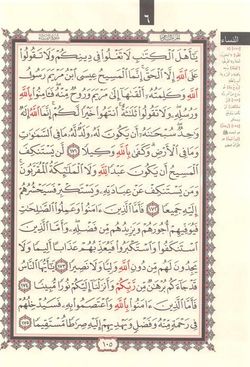 ٦
النساء
يَٰٓأَهْلَ ٱلْكِتَٰبِ لَا تَغْلُوا۟ فِى دِينِكُمْ وَلَا تَقُولُوا۟
عَلَى ٱللَّهِ إِلَّا ٱلْحَقَّ إِنَّمَا ٱلْمَسِيحُ عِيسَى ٱبْنُ مَرْيَمَ رَسُولُ
ٱللَّهِ وَكَلِمَتُهُۥٓ أَلْقَىٰهَآ إِلَىٰ مَرْيَمَ وَرُوحٌ مِّنْهُ فَـَٔامِنُوا۟ بِٱللَّهِ
وَرُسُلِهِۦ وَلَا تَقُولُوا۟ ثَلَٰثَةٌ ٱنتَهُوا۟ خَيْرًا لَّكُمْ إِنَّمَا ٱللَّهُ إِلَٰهٌ
وَٰحِدٌ سُبْحَٰنَهُۥٓ أَن يَكُونَ لَهُۥ وَلَدٌ لَّهُۥ مَا فِى ٱلسَّمَٰوَٰتِ
وَمَا فِى ٱلْأَرْضِ وَكَفَىٰ بِٱللَّهِ وَكِيلًا ١٧١ لَّن يَسْتَنكِفَ
ٱلْمَسِيحُ أَن يَكُونَ عَبْدًا لِّلَّهِ وَلَا ٱلْمَلَٰٓئِكَةُ ٱلْمُقَرَّبُونَ
وَمَن يَسْتَنكِفْ عَنْ عِبَادَتِهِۦ وَيَسْتَكْبِرْ فَسَيَحْشُرُهُمْ
إِلَيْهِ جَمِيعًا ١٧٢ فَأَمَّا ٱلَّذِينَ ءَامَنُوا۟ وَعَمِلُوا۟ ٱلصَّٰلِحَٰتِ
فَيُوَفِّيهِمْ أُجُورَهُمْ وَيَزِيدُهُم مِّن فَضْلِهِۦ وَأَمَّا ٱلَّذِينَ
ٱسْتَنكَفُوا۟ وَٱسْتَكْبَرُوا۟ فَيُعَذِّبُهُمْ عَذَابًا أَلِيمًا وَلَا
يَجِدُونَ لَهُم مِّن دُونِ ٱللَّهِ وَلِيًّا وَلَا نَصِيرًا ١٧٣ يَٰٓأَيُّهَا ٱلنَّاسُ
قَدْ جَآءَكُم بُرْهَٰنٌ مِّن رَّبِّكُمْ وَأَنزَلْنَآ إِلَيْكُمْ نُورًا مُّبِينًا ١٧٤
فَأَمَّا ٱلَّذِينَ ءَامَنُوا۟ بِٱللَّهِ وَٱعْتَصَمُوا۟ بِهِۦ فَسَيُدْخِلُهُمْ
فِى رَحْمَةٍ مِّنْهُ وَفَضْلٍ وَيَهْدِيهِمْ إِلَيْهِ صِرَٰطًا مُّسْتَقِيمًا ١٧٥
١٠٥